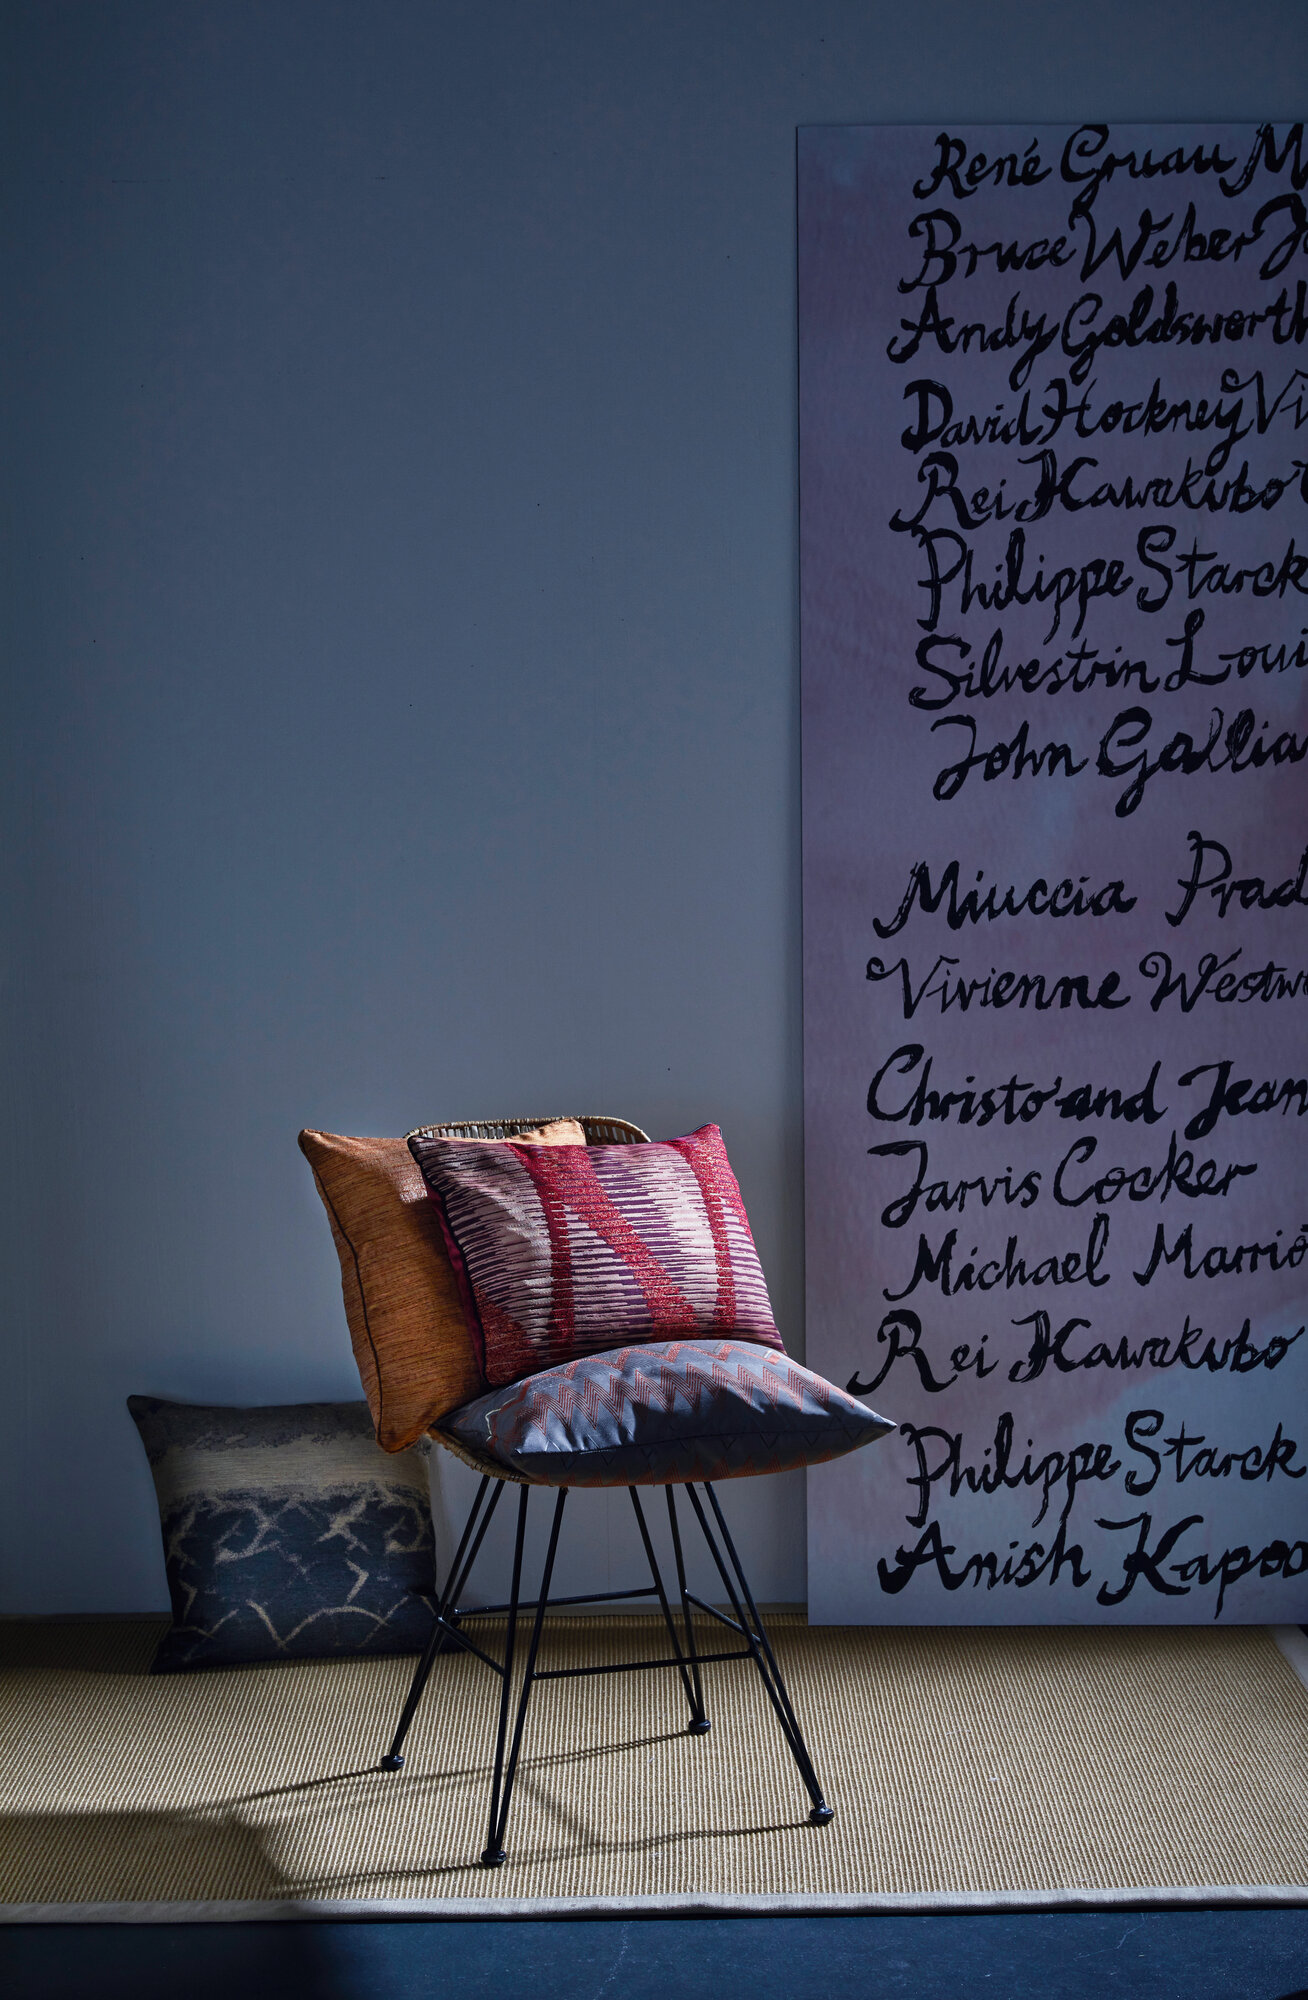 René Gruau M
Bruce Weber J
Andy Goldsworth
David Hockney Vi
Rei Kawakubo
Philippe Starck
Silvestrin Loui
John Gallia
Miuccia Prad
Vivienne Westw
Christo and Jean
Jarvis Cocker
Michael Marrio
Rei Kawakubo
Philippe Starck
Anish Kapoo